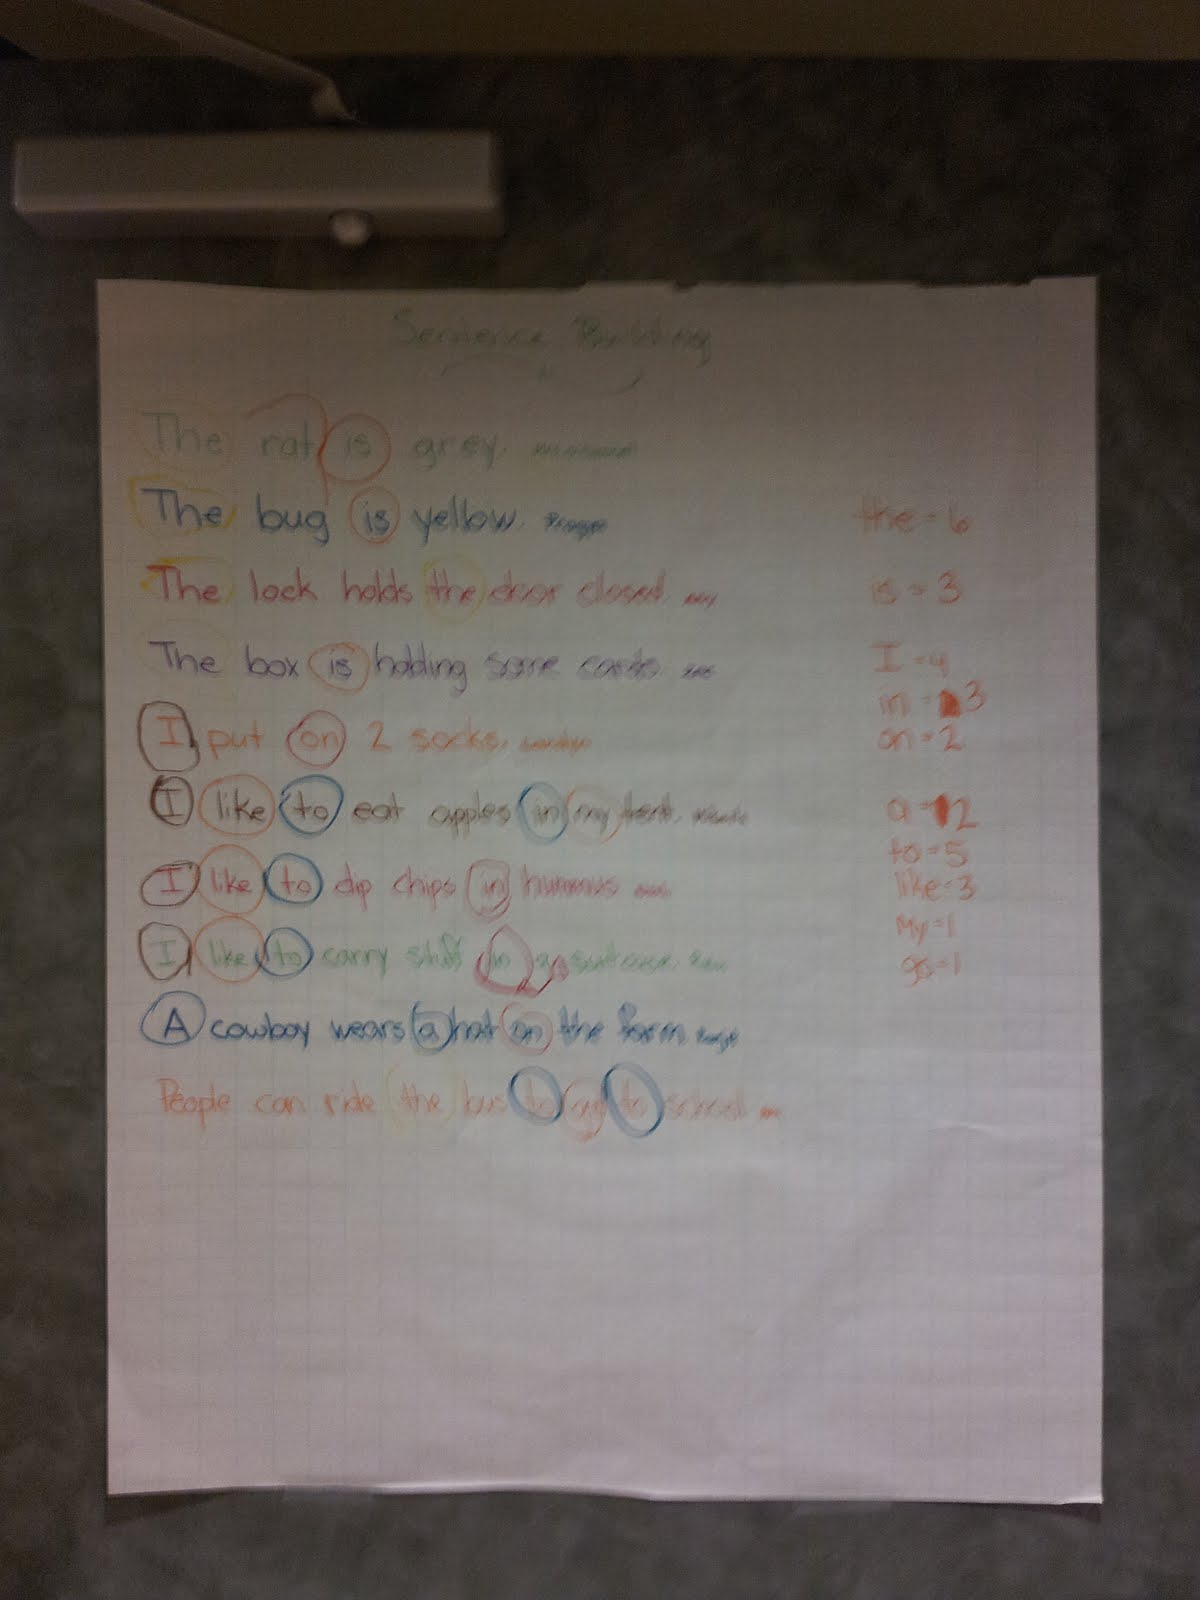 Sentence Building
The rat is grey.
The bug is yellow.
The lock holds the door closed.
The box is holding some cards.
I put on 2 socks.
I like to eat apples in my tent.
I like to dip chips in hummus
I like to carry stuff in a suitcase.
A cowboy wears a hat on the farm
People can ride the bus to go to school.
the = 6
is = 3
I = 4
in = 3
on = 2
a = 2
to = 5
like = 3
My = 1
go = 1